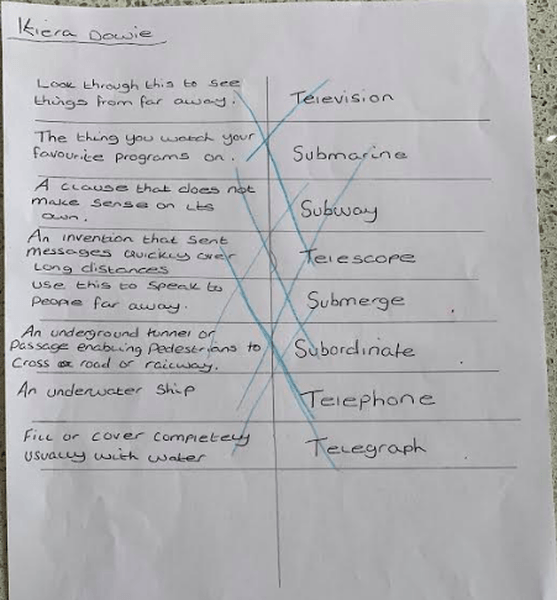 Kiera Dowie
Look through this to see
things from far away.
Television
The thing you watch your
favourite programs on.
Submarine
A clause that does not
make sense on its
own.
Subway
An invention that sent
messages quickly over
long distances
Telescope
use this to speak to
people far away.
Submerge
An underground tunnel or
passage enabling pedestrians to
cross a road or railway.
Subordinate
An underwater ship
Telephone
Fill or cover completely
usually with water
Telegraph